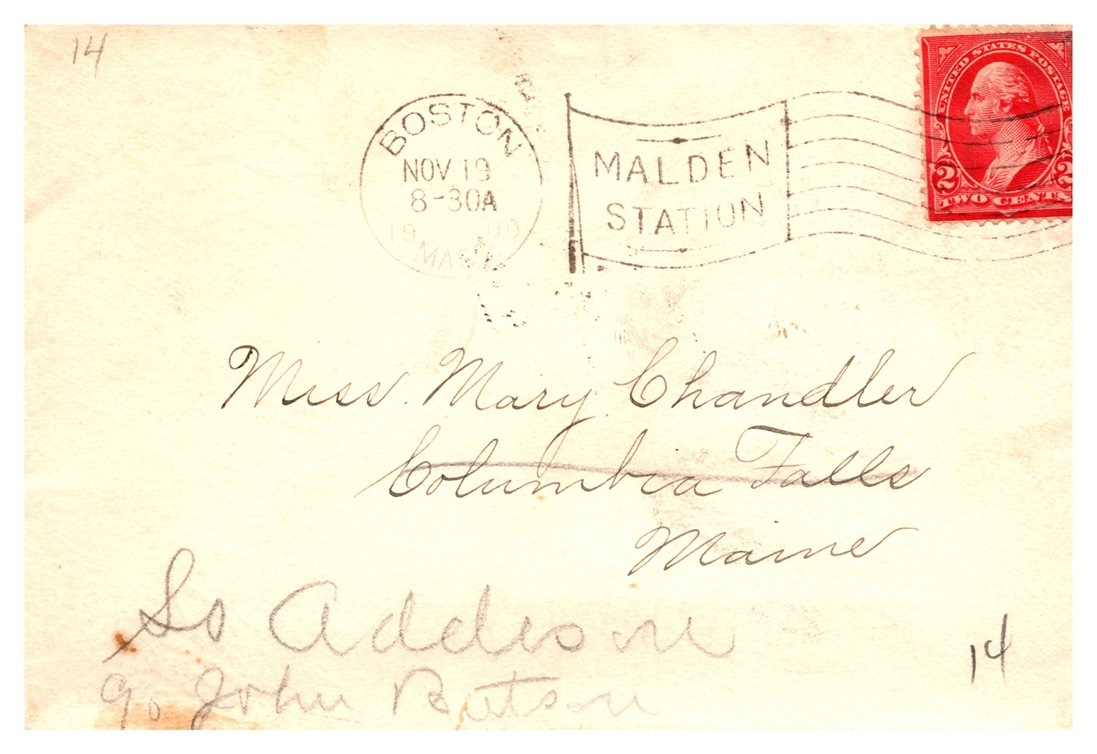 14
UNITED STATES POSTAGE
2 2
TWO CENTS
BOSTON
NOV 19
8-30A
19 00
MASS
MALDEN
STATION
Miss. Mary Chandler
Columbia Falls
Maine
So Addison
c/o John Batson
14